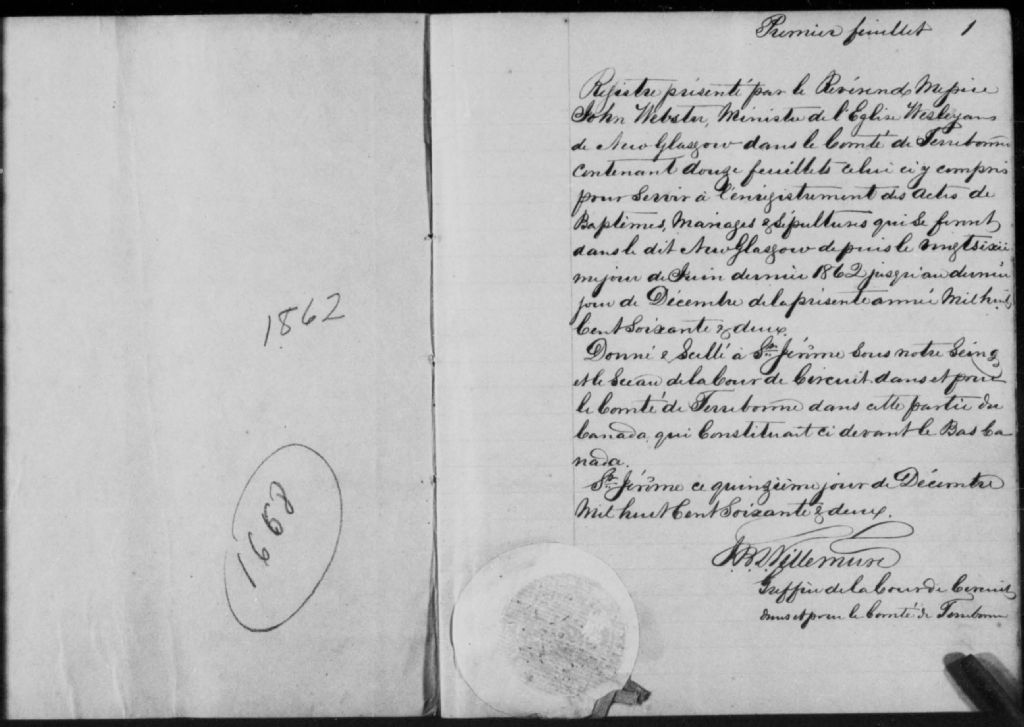 1862
1992
Premier feuillet 1
Registre présenté par le Révérend Messire
John Webster, Ministre de l'Eglise Wesleyans
de New Glasgow dans le Comté de Terrebonne
contenant douze feuillets celui ci y compris
pour servir à l'enrégistrement des actes de
Baptêmes, Mariages & Sépultures qui se feront
dans le dit New Glasgow depuis le vingtsixiè
me jour de Juin dernier 1862 jusqu'au dernier
jour de Décembre de la présente année Mil huit
Cent Soixante & deux.
Donné & Scellé à St. Jérôme Sous notre Seing
et le Sceau de la Cour de Circuit dans et pour
le Comté de Terrebonne dans cette partie du
Canada qui Constituait ci devant le Bas Ca
nada.
St. Jérôme ce quinzième jour de Décembre
Mil huit Cent Soixante & deux.
Villemure
Greffier de la Cour de Circuit
dans et pour le Comté de Terrebonne